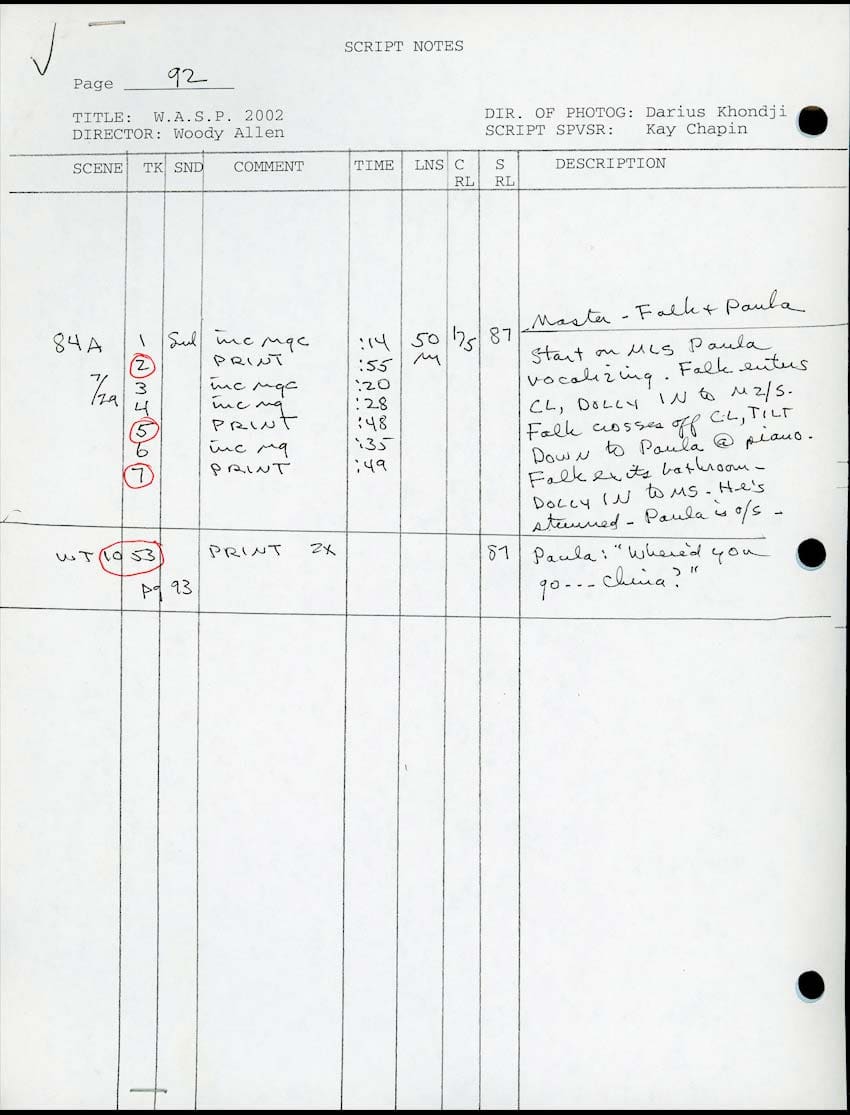 SCRIPT NOTES
Page 92
TITLE: W.A.S.P. 2002
DIR. OF PHOTOG: Darius Khondji
DIRECTOR: Woody Allen
SCRIPT SPVSR: Kay Chapin
SCENE TK SND COMMENT TIME LNS C RL S RL DESCRIPTION
Master - Falk + Paula
84A 1 Snd inc ngc :14 50 87
2 PRINT :55
7/29 3 inc ngc :20
4 inc ng :28
5 PRINT :48
6 inc ng :35
7 PRINT :49
Start on MLS Paula
vocalizing. Falk enters
CL, DOLLY IN to M2/S.
Falk crosses off CL, TILT
DOWN to Paula @ piano.
Falk exits bathroom -
DOLLY IN to MS. He's
stunned - Paula is o/s -
WT 1053 PRINT 2X 87 Paula: "Where'd you
go --- China?"
pg 93